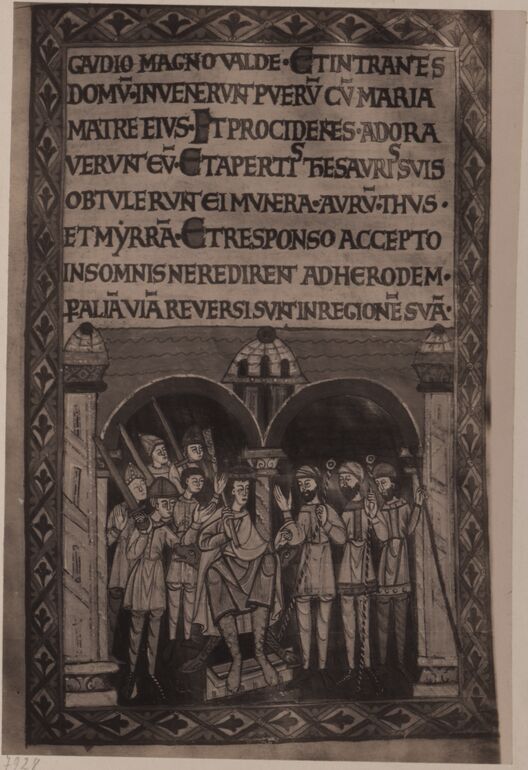 GAVDIO MAGNO VALDE · ET INTRANTES
DOMŪ · INVENERVNT PVERŪ CŪ MARIA
MATRE EIVS · ET PROCIDENTES · ADORA
VERVNT EŪ · ET APERTIS THESAVRIS SVIS
OBTVLERVNT EI MVNERA · AVRŪ · THVS ·
ET MYRRĀ · ET RESPONSO ACCEPTO
IN SOMNIS NE REDIRENT AD HERODEM ·
P ALIĀ VIĀ REVERSI SVNT IN REGIONĒ SVĀ ·
7928